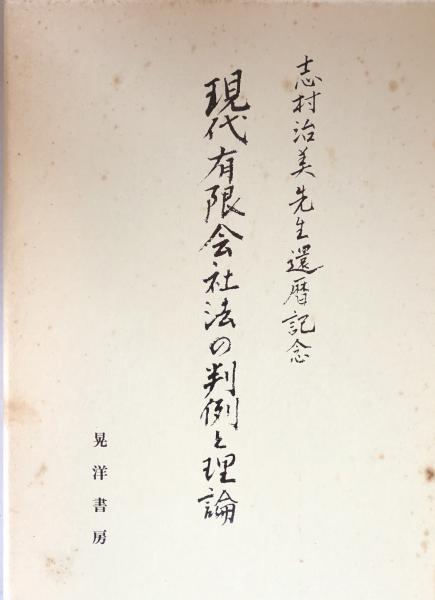 志村治美先生還暦記念
現代有限会社法の判例と理論
晃洋書房